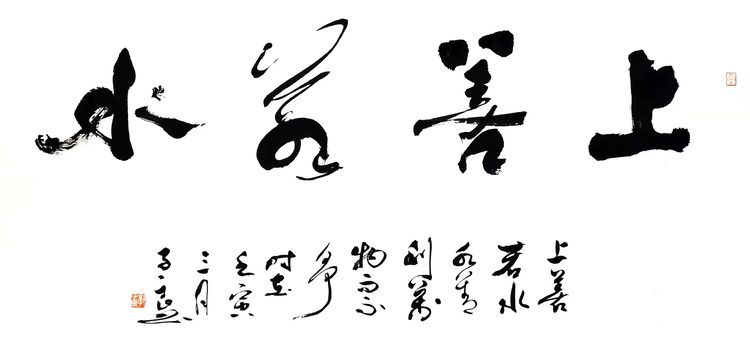 上善若水
上善
若水
水善
利萬
物而不
争
时在
壬寅
三月